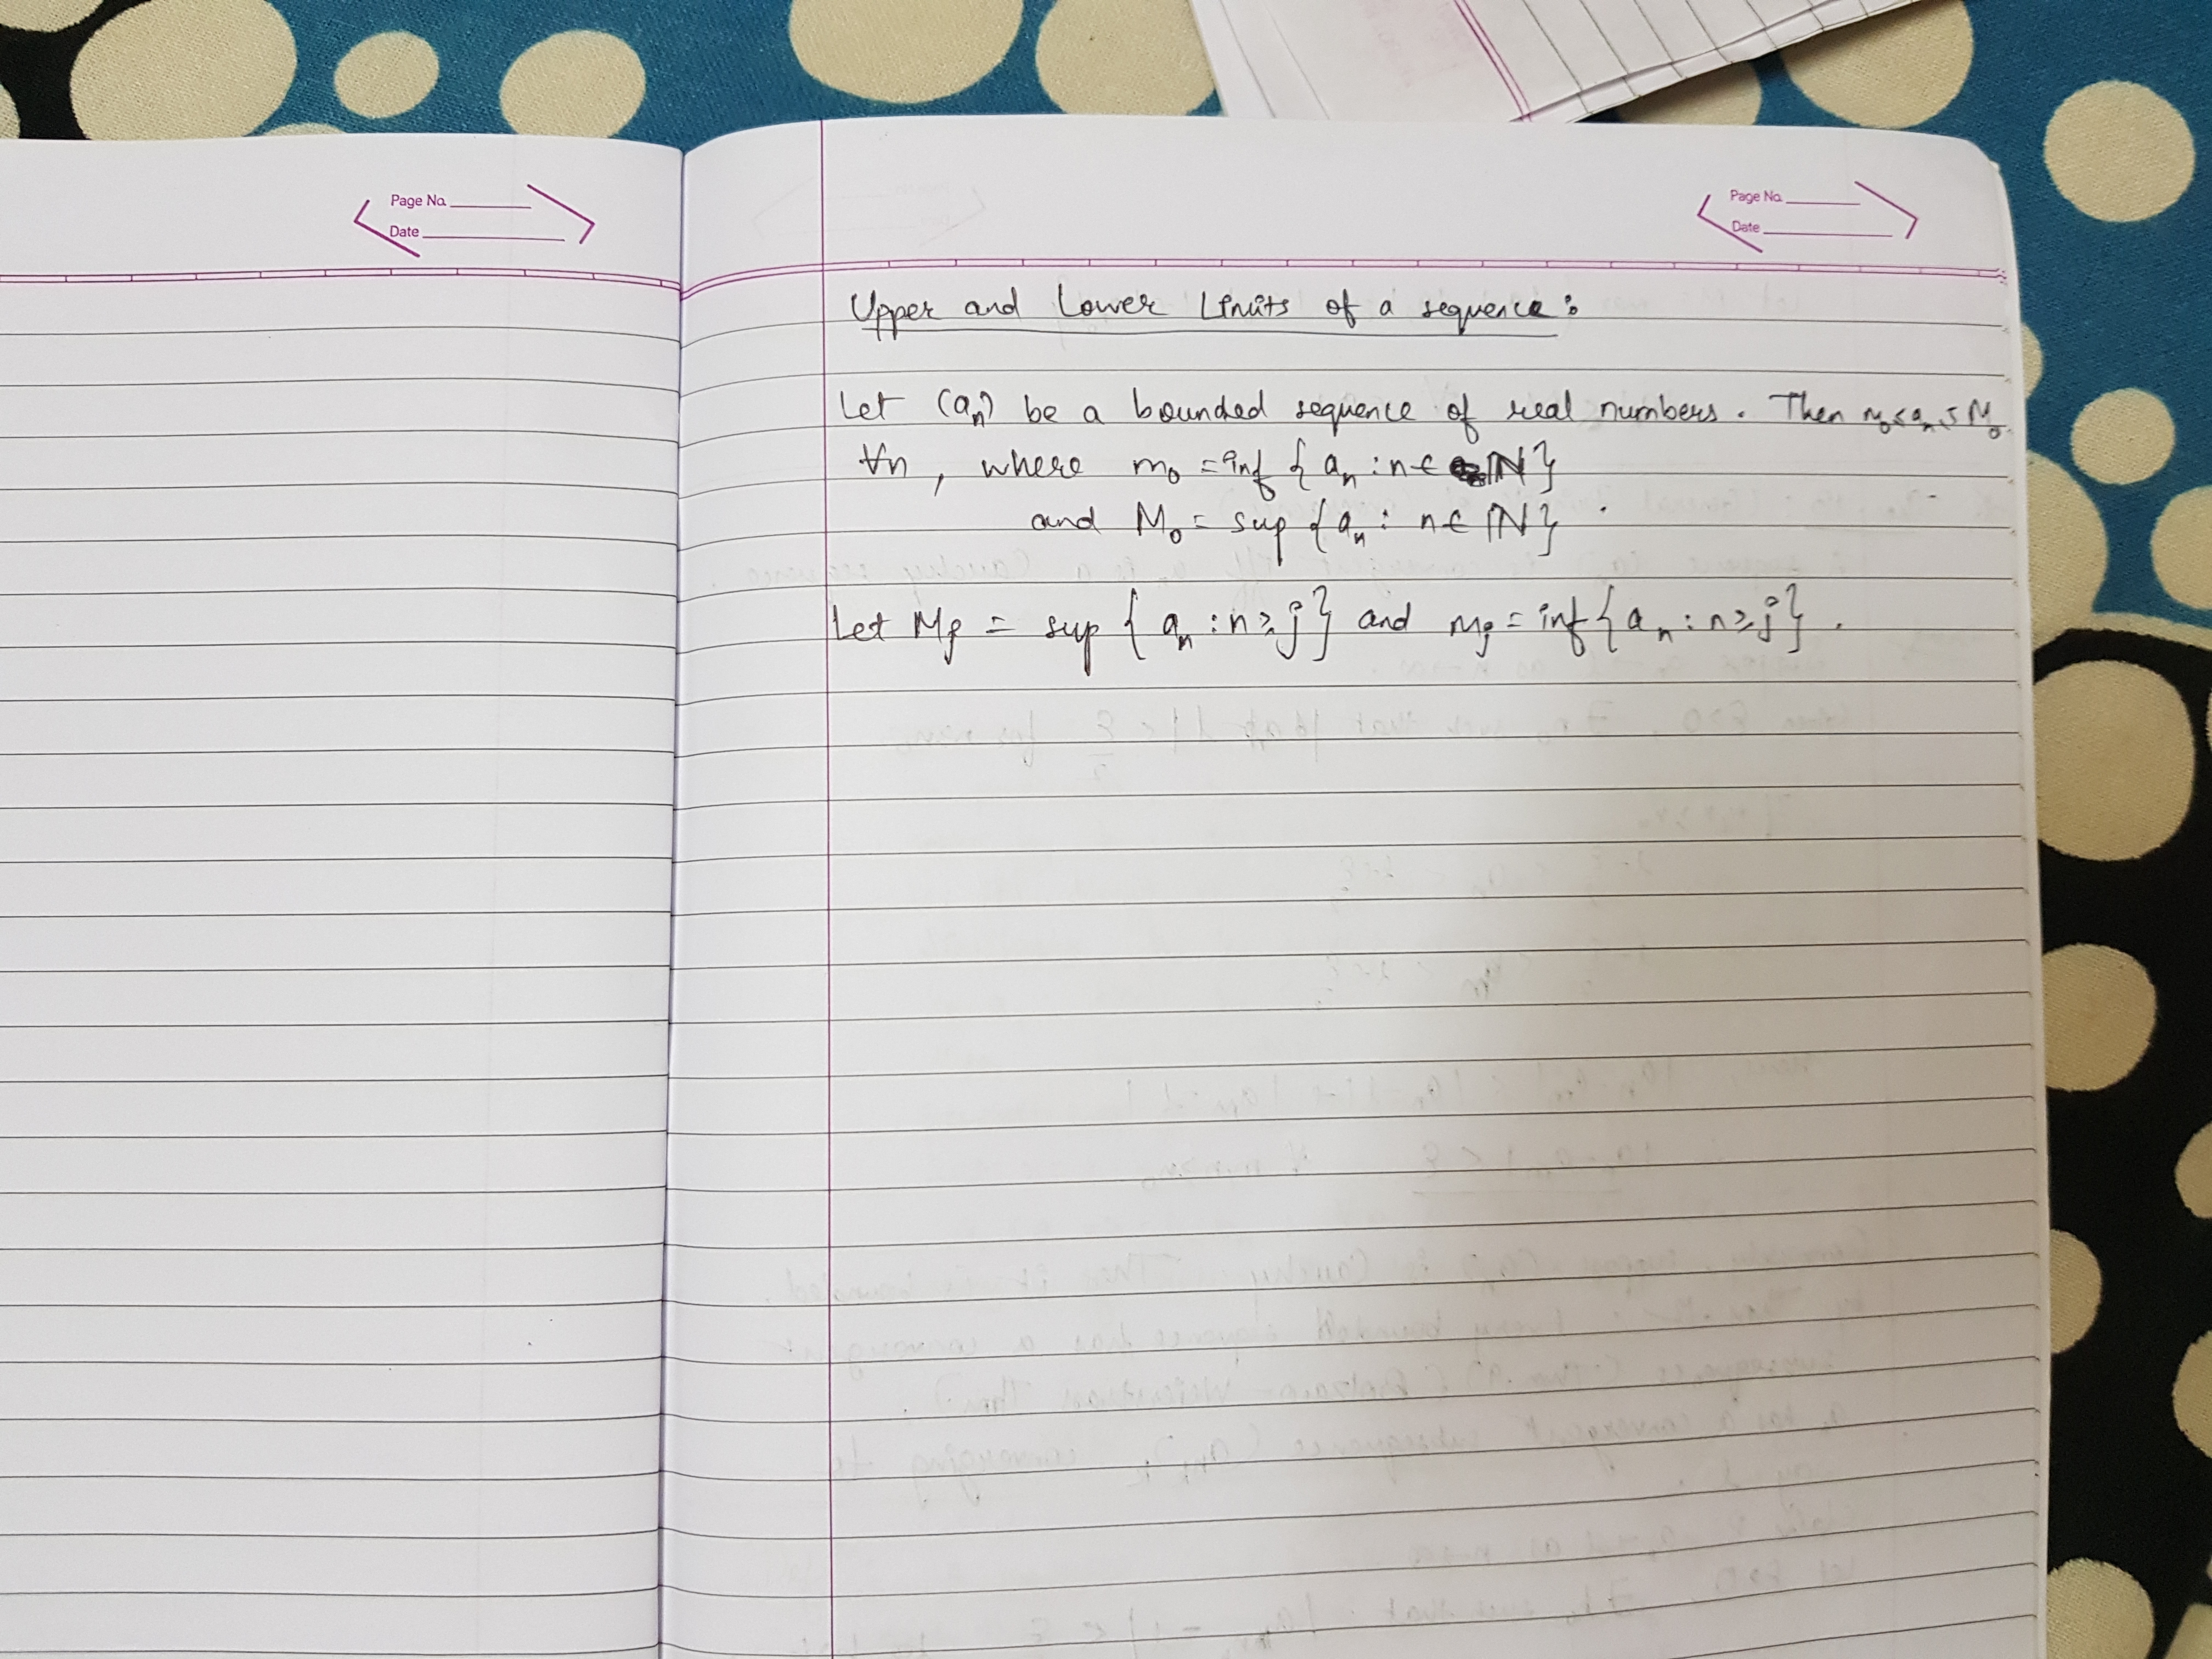 Page No.
Date
Page No.
Date
Upper and Lower Limits of a sequence:
Let (aₙ) be a bounded sequence of real numbers. Then m₀≤aₙ≤M₀
∀n, where m₀ = inf {aₙ : n ∈ ℕ}
and M₀ = sup {aₙ : n ∈ ℕ}.
Let Mⱼ = sup {aₙ : n ≥ j} and mⱼ = inf {aₙ : n ≥ j}.